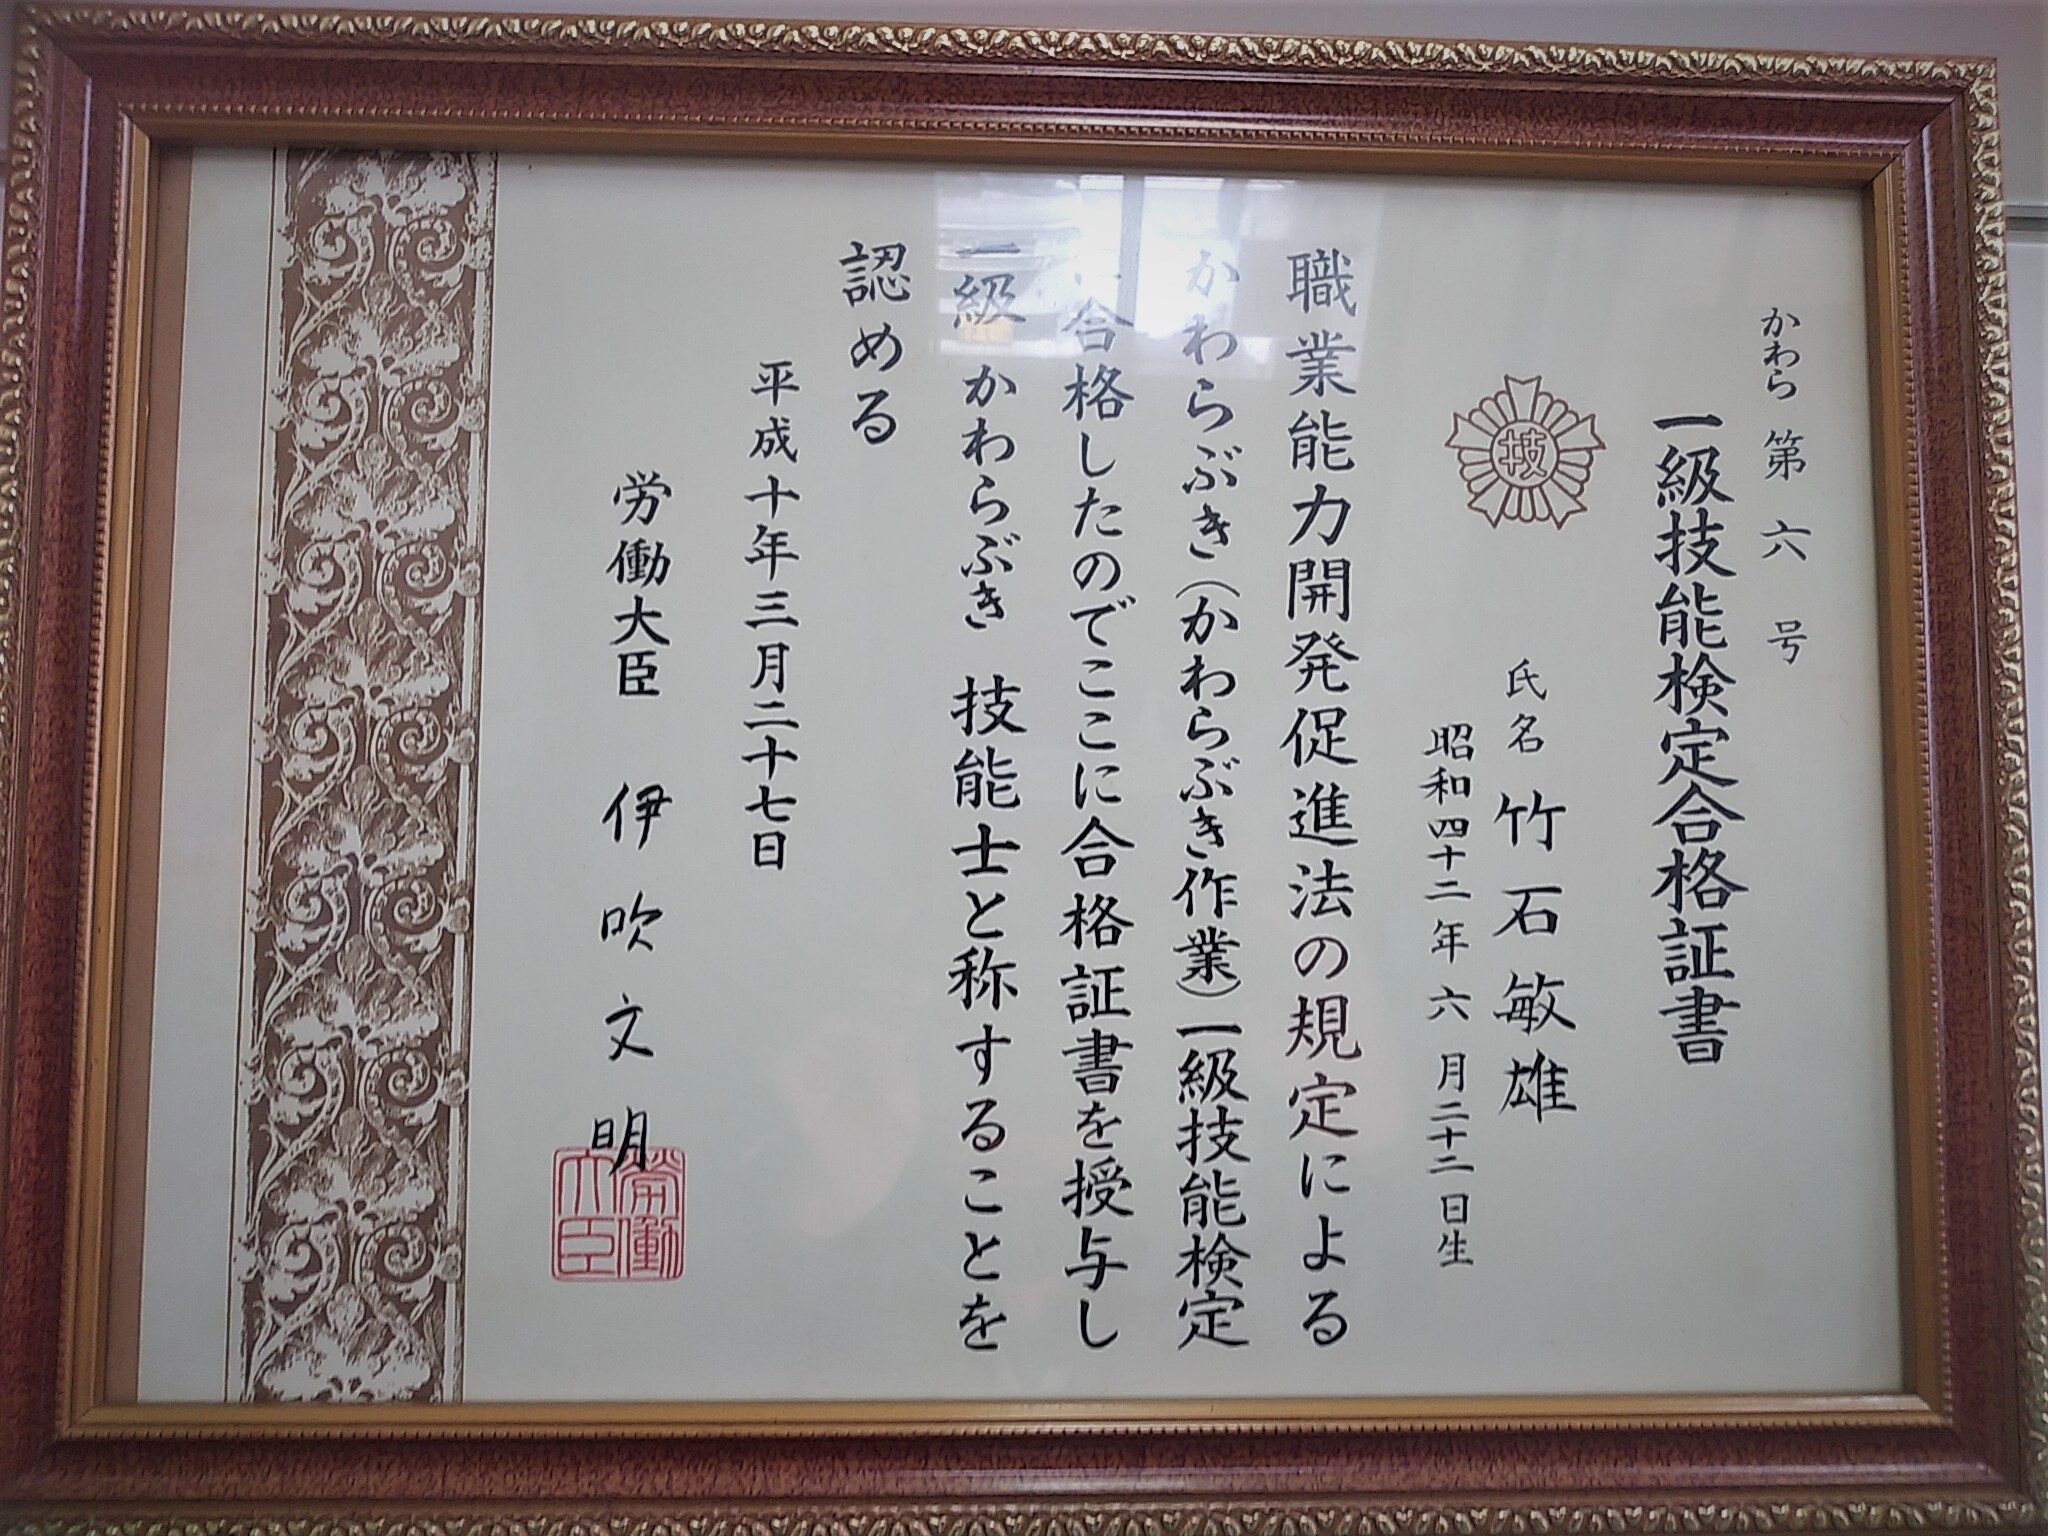 かわら第六号
一級技能検定合格証書
技
氏名 竹石敏雄
昭和四十二年六月二十二日生
職業能力開発促進法の規定による
かわらぶき(かわらぶき作業)一級技能検定
に合格したのでここに合格証書を授与し
一級 かわらぶき 技能士と称することを
認める
平成十年三月二十七日
労働大臣 伊吹文明
労働大臣